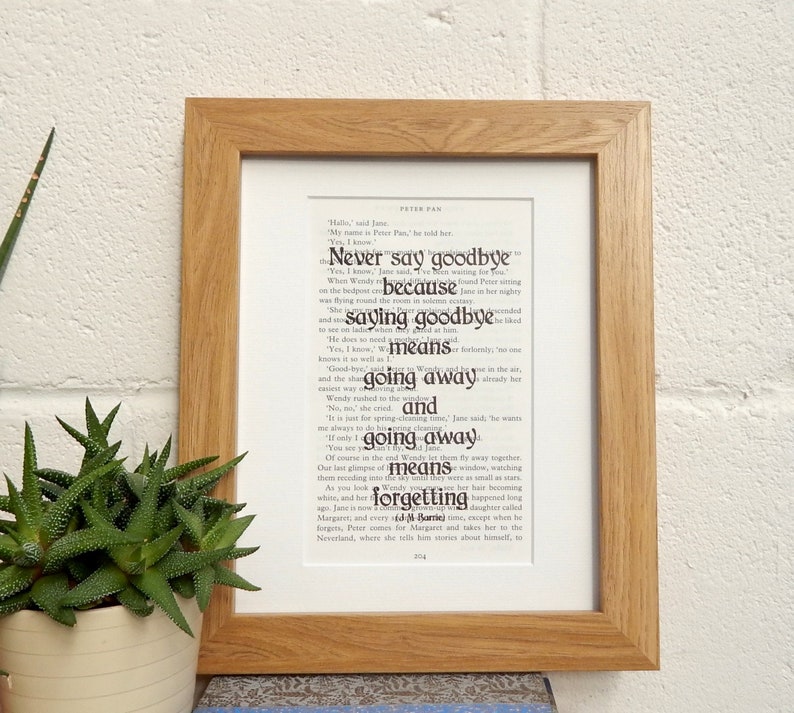 PETER PAN
'Hallo,' said Jane.
'My name is Peter Pan,' he told her.
'Yes, I know.'
back for my mother,' he explained, to her to
Never say goodbye
'Yes, I know,' Jane said, 'I've been waiting for you.'
When Wendy returned diffidently she found Peter sitting
because
on the bedpost crowing Jane in her nighty
was flying round the room in solemn ecstasy.
'She is my mother,' Peter explained; and Jane descended
saying goodbye
and stood he liked
to see on ladies when they gazed at him.
'He does so need a mother,' Jane said.
means
'Yes, I know,' Wendy forlornly; 'no one
knows it so well as I.'
'Good-bye,' said Peter to Wendy; and he rose in the air,
going away
and the shameless was already her
easiest way of moving about.
Wendy rushed to the window.
and
'No, no,' she cried.
'It is just for spring-cleaning time,' Jane said; 'he wants
me always to do his spring cleaning.'
going away
'If only I could
'You see you can't fly,' said Jane.
Of course in the end Wendy let them fly away together.
means
Our last glimpse of her the window, watching
them receding into the sky until they were as small as stars.
As you look at Wendy you may see her hair becoming
forgetting
white, and her happened long
ago. Jane is now a common grown-up with a daughter called
(J M Barrie)
Margaret; and every spring time, except when he
forgets, Peter comes for Margaret and takes her to the
Neverland, where she tells him stories about himself, to
204